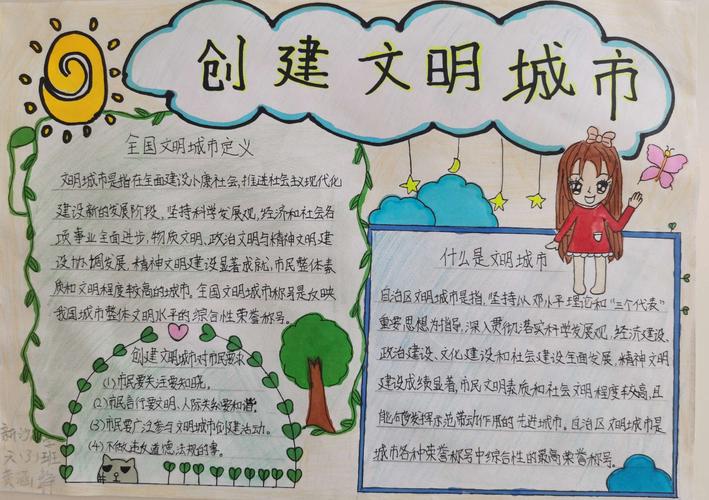 创建文明城市
全国文明城市定义
文明城市是指在全面建设小康社会,推进社会主义现代化
建设新的发展阶段,坚持科学发展观,经济和社会各
项事业全面进步,物质文明、政治文明与精神文明建
设协调发展,精神文明建设显著成就,市民整体素
质和文明程度较高的城市。全国文明城市称号是反映
我国城市整体文明水平的综合性荣誉称号。
创建文明城市对市民要求
(1)市民要关注要知晓。
(2)市民言行要文明、人际关系要和谐。
(3)市民要广泛参与文明城市创建活动。
(4)不做违反道德法规的事。
什么是文明城市
自治区文明城市是指,坚持以邓小平理论和“三个代表”
重要思想为指导,深入贯彻落实科学发展观,经济建设、
政治建设、文化建设和社会建设全面发展,精神文明
建设成绩显著,市民文明素质和社会文明程度较高,且
能够发挥示范带动作用的先进城市。自治区文明城市是
城市各种荣誉称号中综合性的最高荣誉称号。